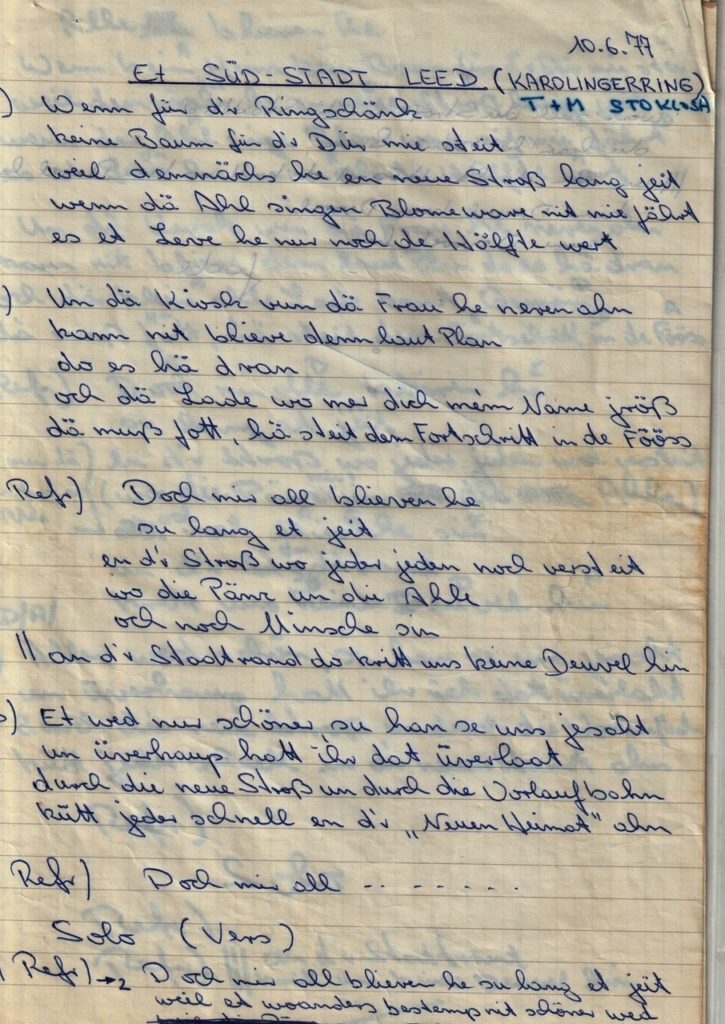 10.6.77
Et SÜD-STADT LEED (KAROLINGERRING)
T + M STOKLOSA
) Wenn für d'r Ringschänk
keine Baum für d'r Dür mie steit
weil demnächs he en neue Stroß lang jeit
wenn dä Ahl singen Blomewave nit mie fährt
es et Leve he nur noch de Hälfte wert
) Un dä Kiosk vun dä Frau he nevenahn
kann nit blieve denn laut Plan
do es hä dran
och dä Lade wo mer dich mem Name jröß
dä muß fott, hä steit dem Fortschritt in de Fööss
Refr) Doch mir all blieven he
su lang et jeit
en d'r Stroß wo jeder jeden noch versteit
wo die Pänz un die Ahle
och noch Minsche sin
|| an d'r Stadtrand do kritt uns keine Deuvel hin
) Et wed nur schöner su han se uns jesaht
un üverhaup hatt ihr dat üverlaat
durch die neue Stroß un durch die Vorlaufbahn
kütt jeder schnell en d'r „Neuen Heimat" ahn
Refr) Doch mir all - - . . . . . .
Solo (Vers)
( Refr) → 2 Doch mir all blieven he su lang et jeit
weil et woanders bestemp nit schöner wed